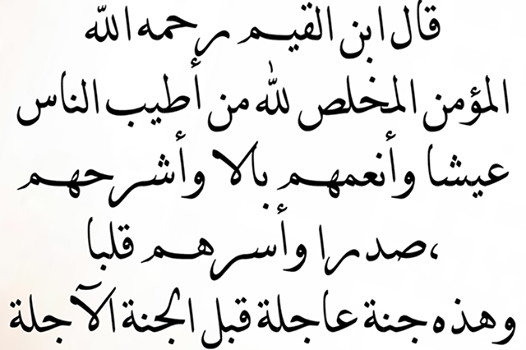 قال ابن القيم رحمه الله
المؤمن المخلص لله من أطيب الناس
عيشا وأنعمهم بالا وأشرحهم
،صدرا وأسرهم قلبا
وهذه جنة عاجلة قبل الجنة الآجلة